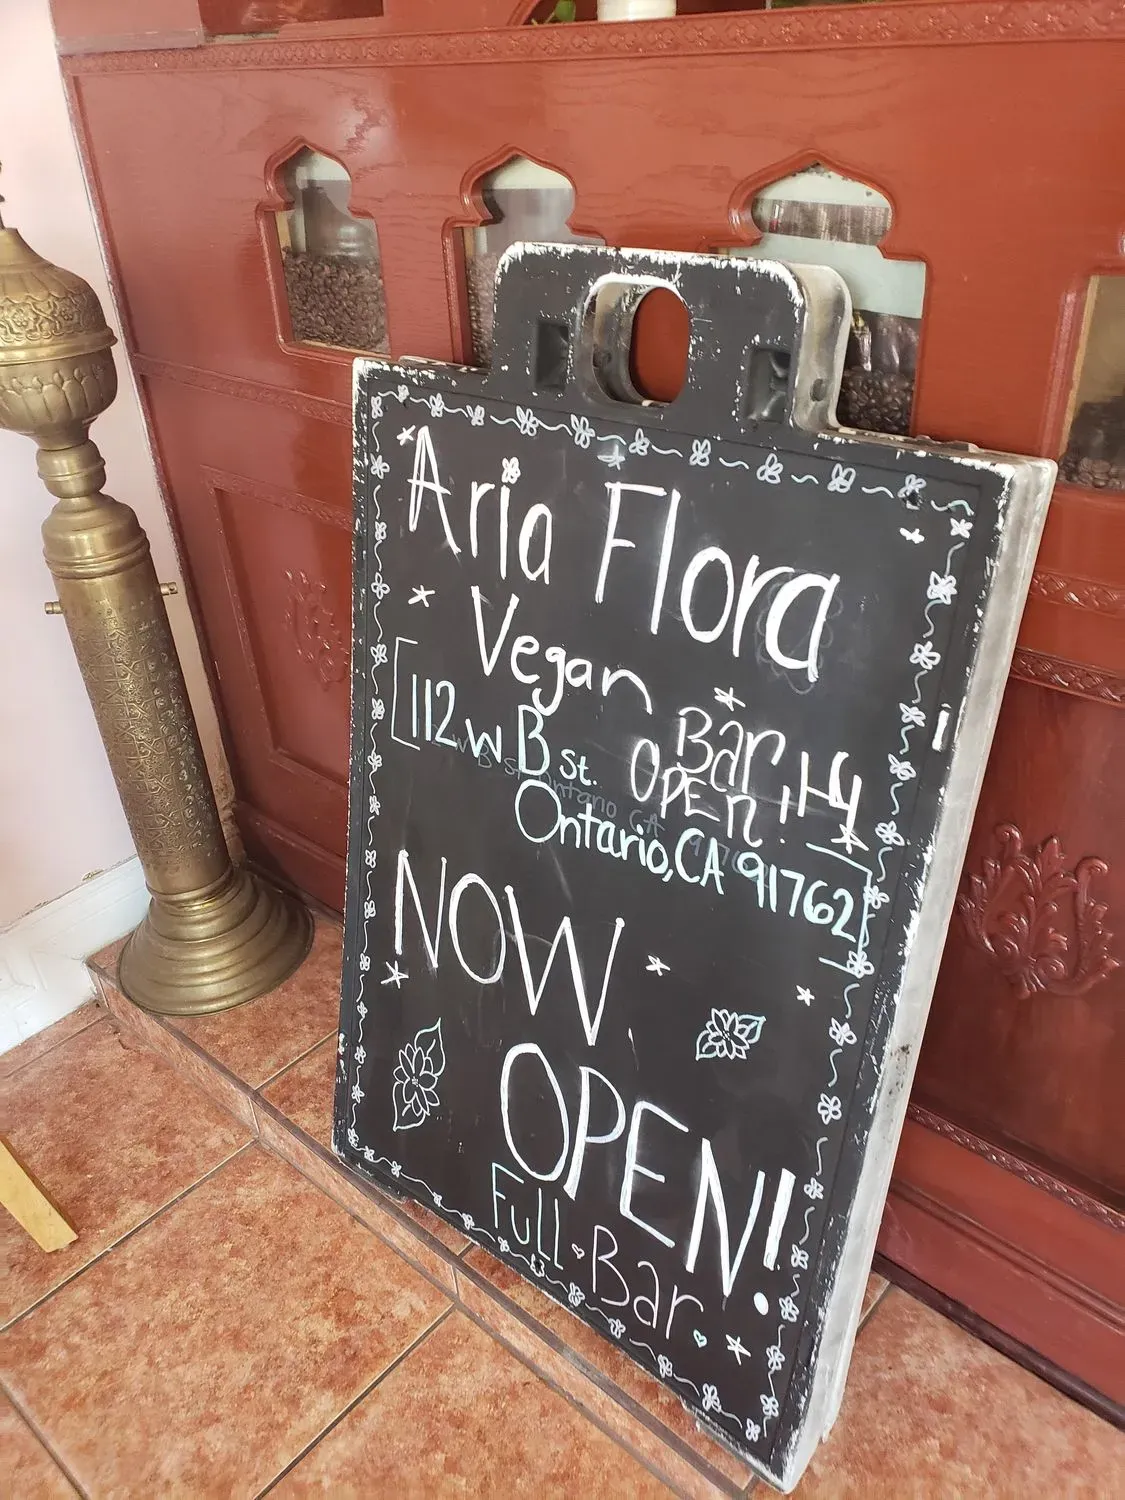 Aria Flora
Vegan
Bar
OPEn! 1-4
112 W B St.
Ontario, CA 91762
NOW
OPEN!
Full Bar